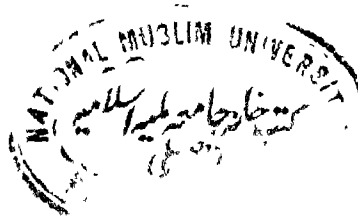 NATIONAL MUSLIM UNIVERSITY
کتب خانہ جامعہ ملیہ اسلامیہ
(دہلی)